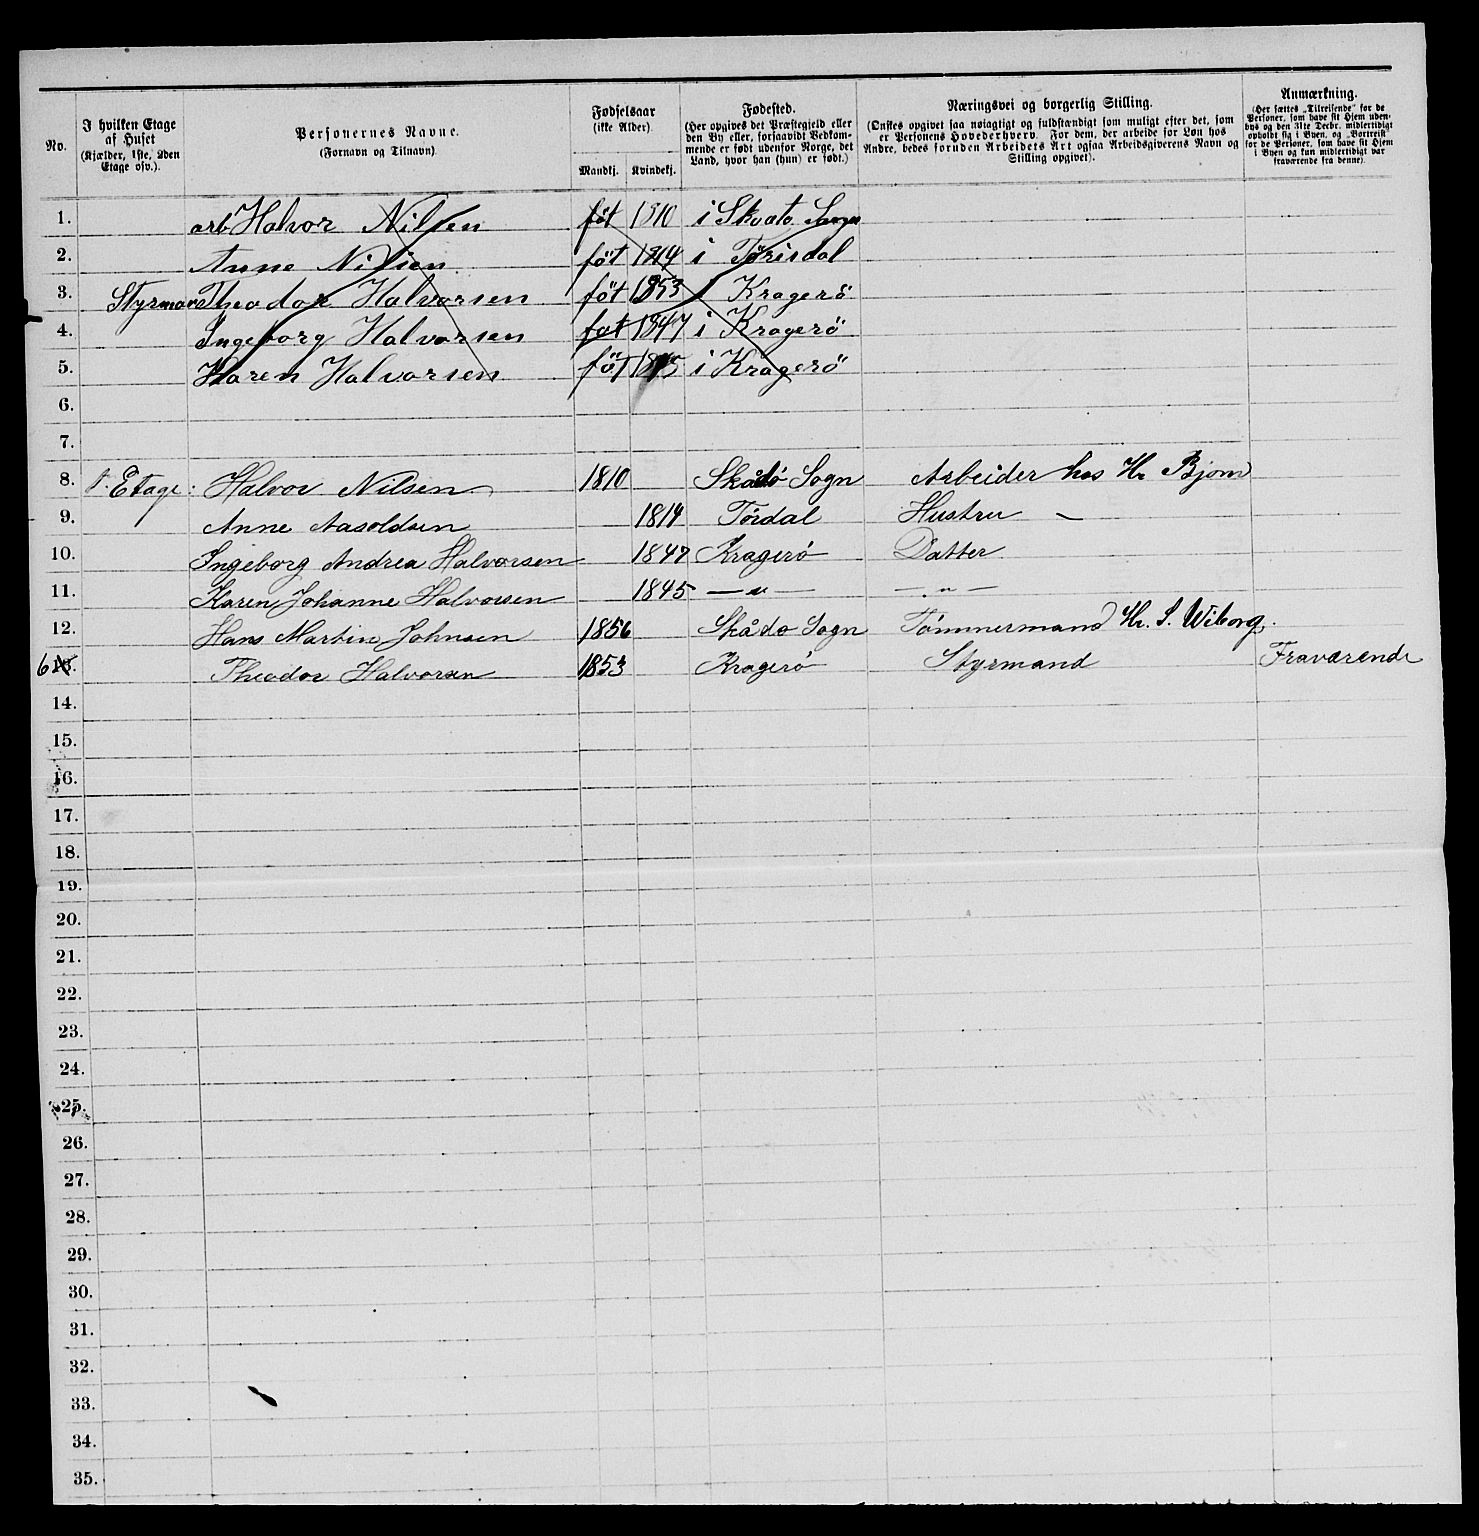 No.
I hvilken Etage af Huset (Kjælder, 1ste, 2den Etage osv.).
Personernes Navne. (Fornavn og Tilnavn)
Fødselsaar (ikke Alder)
Mandkj. Kvindekj.
Fødested. (Her opgives det Præstegjeld eller den By eller, forsaavidt Vedkommende er født udenfor Norge, det Land, hvor han (hun) er født.)
Næringsvei og borgerlig Stilling. (Ønskes opgivet saa nøiagtigt og fuldstændigt som muligt efter det, som er Personens Hovederhverv. For dem, der arbeide for Løn hos Andre, bedes foruden Arbeidets Art ogsaa Arbeidsgiverens Navn og Stilling opgivet).
Anmærkning. (Her sættes „Tilreisende" for de Personer, som have sit Hjem udenbys og den 31te Decbr. midlertidigt opholdt sig i Byen, og „Bortreist" for de Personer, som have sit Hjem i Byen og kun midlertidigt var fraværende fra denne).
1. arb Halvor Nilsen føt 1810 i Skaato Sogn
2. Anne Nilsen föt 1814 i Törisdal
3. Styrman Theodor Halvorsen föt 1853 i Kragerö
4. Ingeborg Halvorsen föt 1847 i Kragerö
5. Karen Halvorsen föt 1845 i Kragerö
6.
7.
8. 1. Etage: Halvor Nilsen 1810 Skådø Sogn Arbeider hos Hr Bjorn
9. Anne Aasoldsen 1814 Tördal Hustru —
10. Ingeborg Andrea Halvorsen 1847 Kragerö Datter
11. Karen Johanne Halvorsen 1845 — „ — — „ —
12. Hans Martin Johnsen 1856 Skådø Sogn Tömmermand Hr. S. Wiborg.
6 13. Theodor Halvorsen 1853 Kragerö Styrmand Fraværende
14.
15.
16.
17.
18.
19.
20.
21.
22.
23.
24.
25.
26.
27.
28.
29.
30.
31.
32.
33.
34.
35.